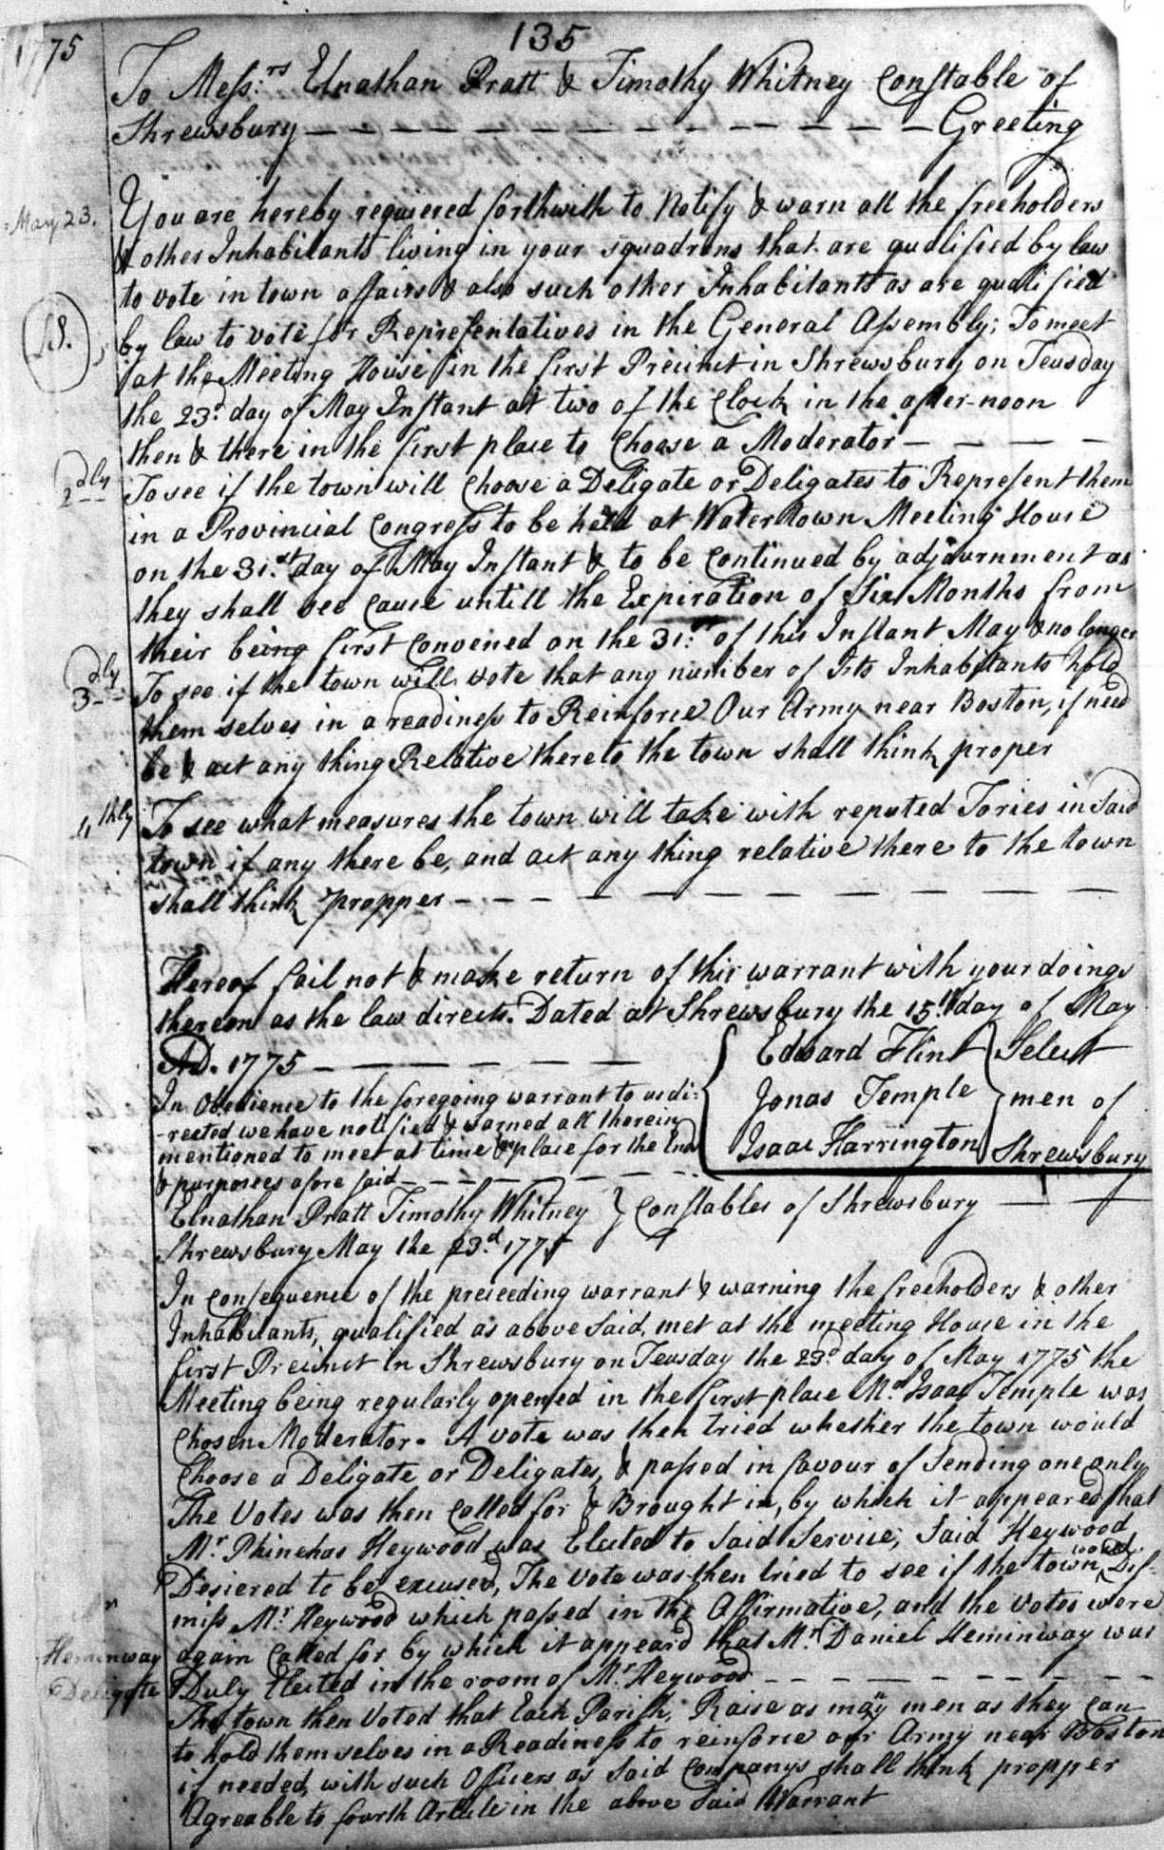 1775
135
To Mess:rs Elnathan Pratt & Timothy Whitney Constable of
Shrewsbury — — — — — — — — — — — — — Greeting
May 23.
You are hereby requiered forthwith to Notify & warn all the freeholders
& other Inhabitants living in your squadrons that are qualified by law
to vote in town affairs & also such other Inhabitants as are qualified
by law to vote for Representatives in the General Assembly; To meet
at the Meeting House in the first Precinct in Shrewsbury on Teusday
the 23d day of May Instant at two of the Clock in the after-noon
then & there in the first place to Choose a Moderator — — — —
2dly To see if the town will Choose a Deligate or Deligates to Represent them
in a Provincial Congress to be held at Watertown Meeting House
on the 31.st day of May Instant & to be Continued by adjournment as
they shall see Cause untill the Expiration of Six Months from
their being first Convened on the 31.st of this Instant May & no longer
3dly To see if the town will vote that any number of Its Inhabitants hold
them selves in a readiness to Reinforce Our Army near Boston, if need
be & act any thing Relative thereto the town shall think proper
4thly To see what measures the town will take with reputed Tories in Said
town if any there be, and act any thing relative there to the town
shall think propper — — — — — — — — — —
Hereof fail not & make return of this warrant with your doings
thereon as the law directs. Dated at Shrewsbury the 15th day of May
AD. 1775 — — — — — —
Edward Flint
Jonas Temple
Isaac Harrington
Select
men of
Shrewsbury
In Obedience to the foregoing warrant to us di:
-rected we have notified & warned all therein
mentioned to meet at time & place for the End
& purposes afore said — — — — —
Elnathan Pratt Timothy Whitney } Constables of Shrewsbury — —
Shrewsbury May the 23.d 1775
In Consequence of the preceeding warrant & warning the freeholders & other
Inhabitants, qualified as above Said, met at the meeting House in the
first Precinct in Shrewsbury on Teusday the 23d day of May 1775 the
Meeting being regularly opened in the first place Mr Isaac Temple was
Chosen Moderator. A vote was then tried whether the town would
Choose a Deligate or Deligates, & passed in favour of Sending one only
The Votes was then Called for & Brought in, by which it appeared that
Mr Phinehas Heywood was Elected to Said Service; Said Heywood
Desiered to be excused, The Vote was then tried to see if the town would Dis-
miss Mr Heywood which passed in the Affirmative, and the Votes were
again Called for by which it appeard that Mr Daniel Heminway was
Heminway
Deligate
Duly Elected in the room of Mr Heywood — — — — — — —
The town then Voted that Each Parish, Raise as many men as they Can
to hold themselves in a Readiness to reinforce our Army near Boston
if needed, with such Officers as Said Companys shall think propper
Agreable to fourth Article in the above Said Warrant